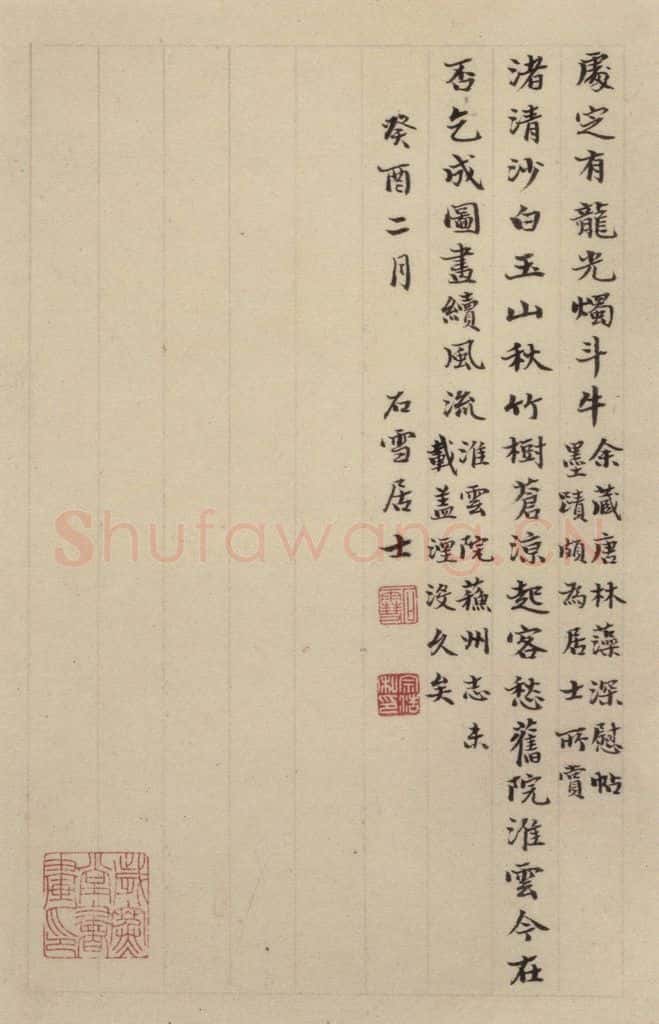 處定有龍光燭斗牛
余藏唐林藻深慰帖
墨蹟頗為居士所賞
渚清沙白玉山秋竹樹蒼涼起客愁舊院淮雲今在
否乞成圖畫續風流
淮雲院蘓州志未
載盖湮没久矣
癸酉二月 石雪居士
石雪
宗浩私印
Shufawang.CN